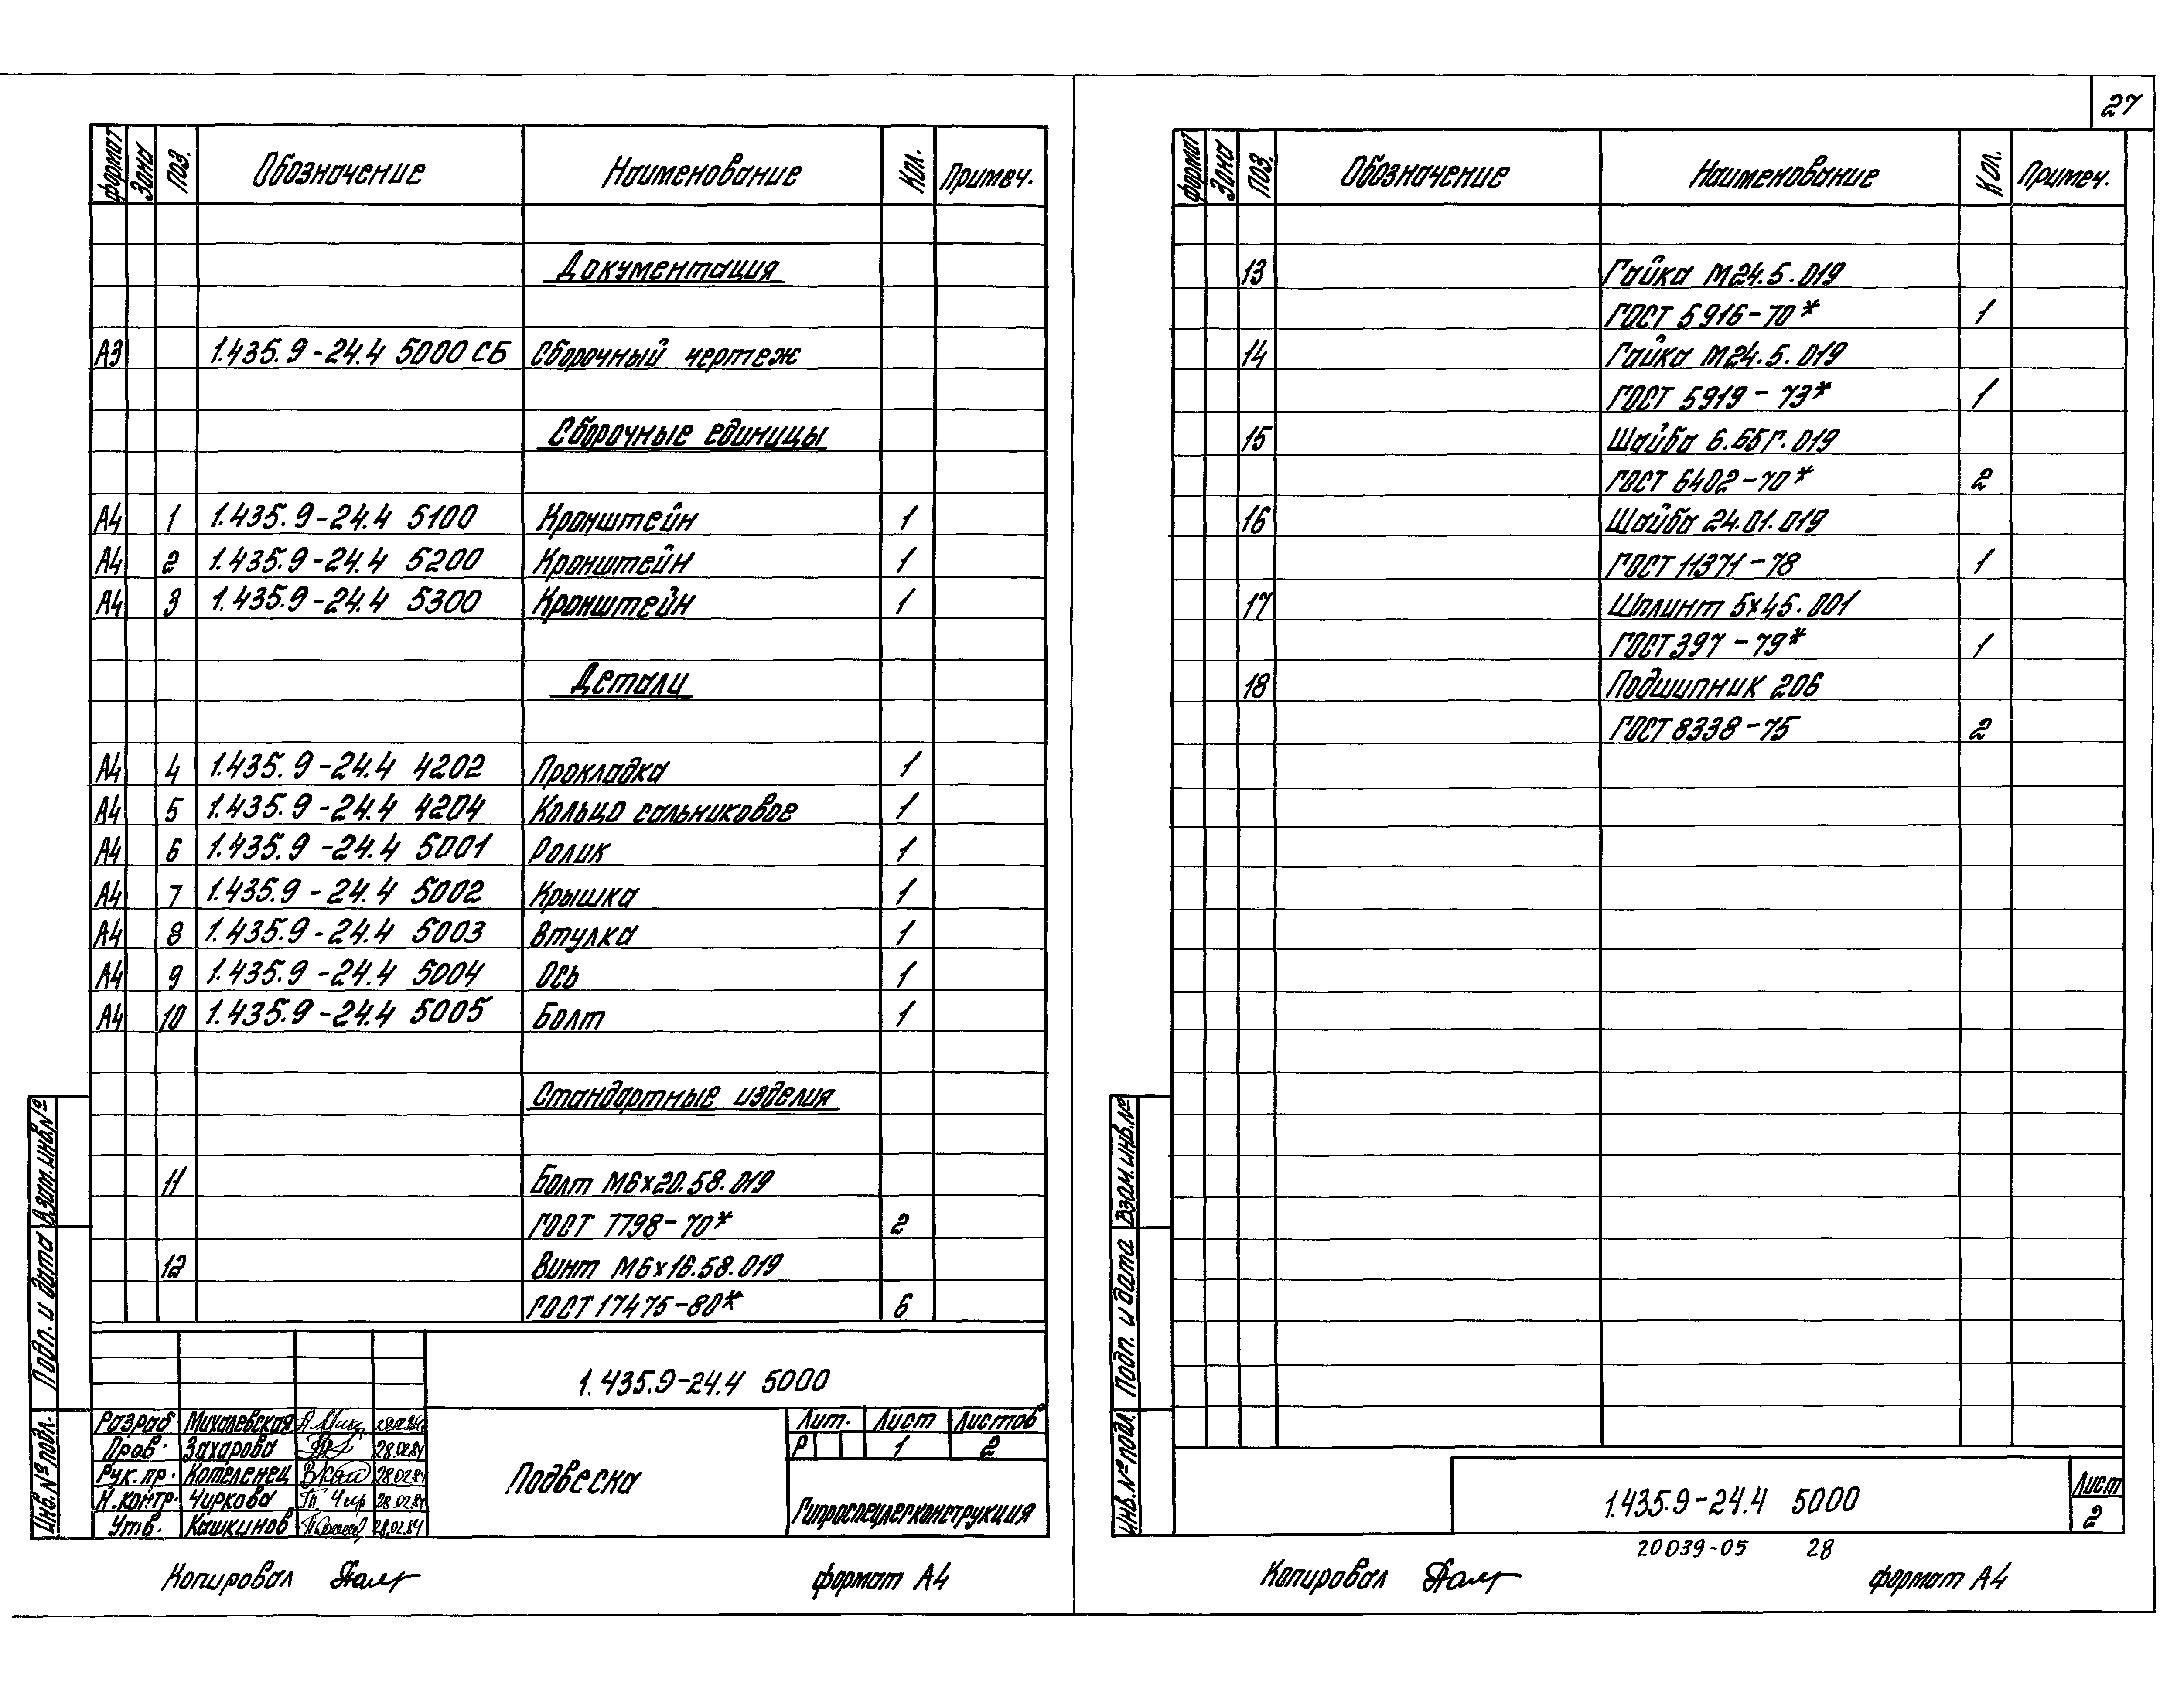 27
формат Зона Поз. Обозначение Наименование Кол. Примеч.
Документация
А3 1.435.9-24.4 5000 СБ Сборочный чертеж
Сборочные единицы
А4 1 1.435.9-24.4 5100 Кронштейн 1
А4 2 1.435.9-24.4 5200 Кронштейн 1
А4 3 1.435.9-24.4 5300 Кронштейн 1
Детали
А4 4 1.435.9-24.4 4202 Прокладка 1
А4 5 1.435.9-24.4 4204 Кольцо сальниковое 1
А4 6 1.435.9-24.4 5001 Ролик 1
А4 7 1.435.9-24.4 5002 Крышка 1
А4 8 1.435.9-24.4 5003 Втулка 1
А4 9 1.435.9-24.4 5004 Ось 1
А4 10 1.435.9-24.4 5005 Болт 1
Стандартные изделия
11 Болт М6х20.58.019
ГОСТ 7798-70* 2
12 Винт М6х16.58.019
ГОСТ 17475-80* 6
Инв.№ подл. Подп. и дата Взам.инв.№
1.435.9-24.4 5000
Разраб Михалевская 28.02.84
Пров. Захарова 28.02.84
Рук.пр. Котеленец 28.02.84
Н.контр. Чиркова 28.02.84
Утв. Кашкинов 28.02.84
Подвеска
Лит. Лист Листов
Р 1 2
Гипроспецлегконструкция
Копировал формат А4
формат Зона Поз. Обозначение Наименование Кол. Примеч.
13 Гайка М24.5.019
ГОСТ 5916-70* 1
14 Гайка М24.5.019
ГОСТ 5919-73* 1
15 Шайба 6.65Г.019
ГОСТ 6402-70* 2
16 Шайба 24.01.019
ГОСТ 11371-78 1
17 Шплинт 5х45.001
ГОСТ 397-79* 1
18 Подшипник 206
ГОСТ 8338-75 2
Инв.№ подл. Подп. и дата Взам.инв.№
1.435.9-24.4 5000
Лист
2
20039-05 28
Копировал формат А4